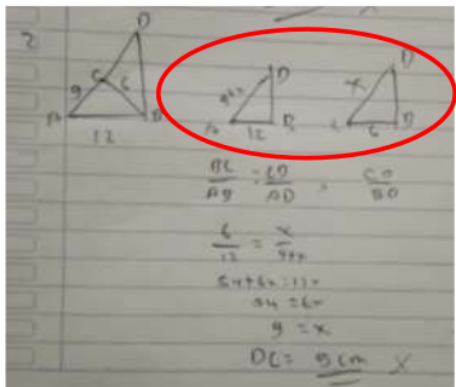 2
D
C
9
6
A
B
12
D
9+x
A
12
B
D
x
C
6
B
BC/AB = CD/AD = CD/BD
6/12 = x/9+x
54+6x=12x
54 = 6x
9 = x
DC = 9cm X